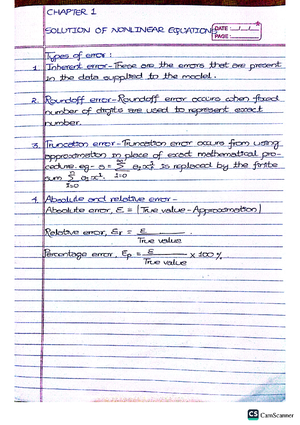 CHAPTER 1
SOLUTION OF NONLINEAR EQUATION
DATE
PAGE
Types of error :
1. Inherent error - These are the errors that are present
in the data supplied to the model.
2. Roundoff error - Roundoff error occurs when fixed
number of digits are used to represent exact
number.
3. Truncation error - Truncation error occurs from using
approximation in place of exact mathematical pro-
cedure. eg - s = Σ aᵢxⁱ is replaced by the finite
i=0
sum Σ aᵢxⁱ.
i=0
4. Absolute and relative error -
Absolute error, E = | True value - Approximation |
Relative error, Er = E
True value
Percentage error, Ep = E × 100 %
True value
CS CamScanner